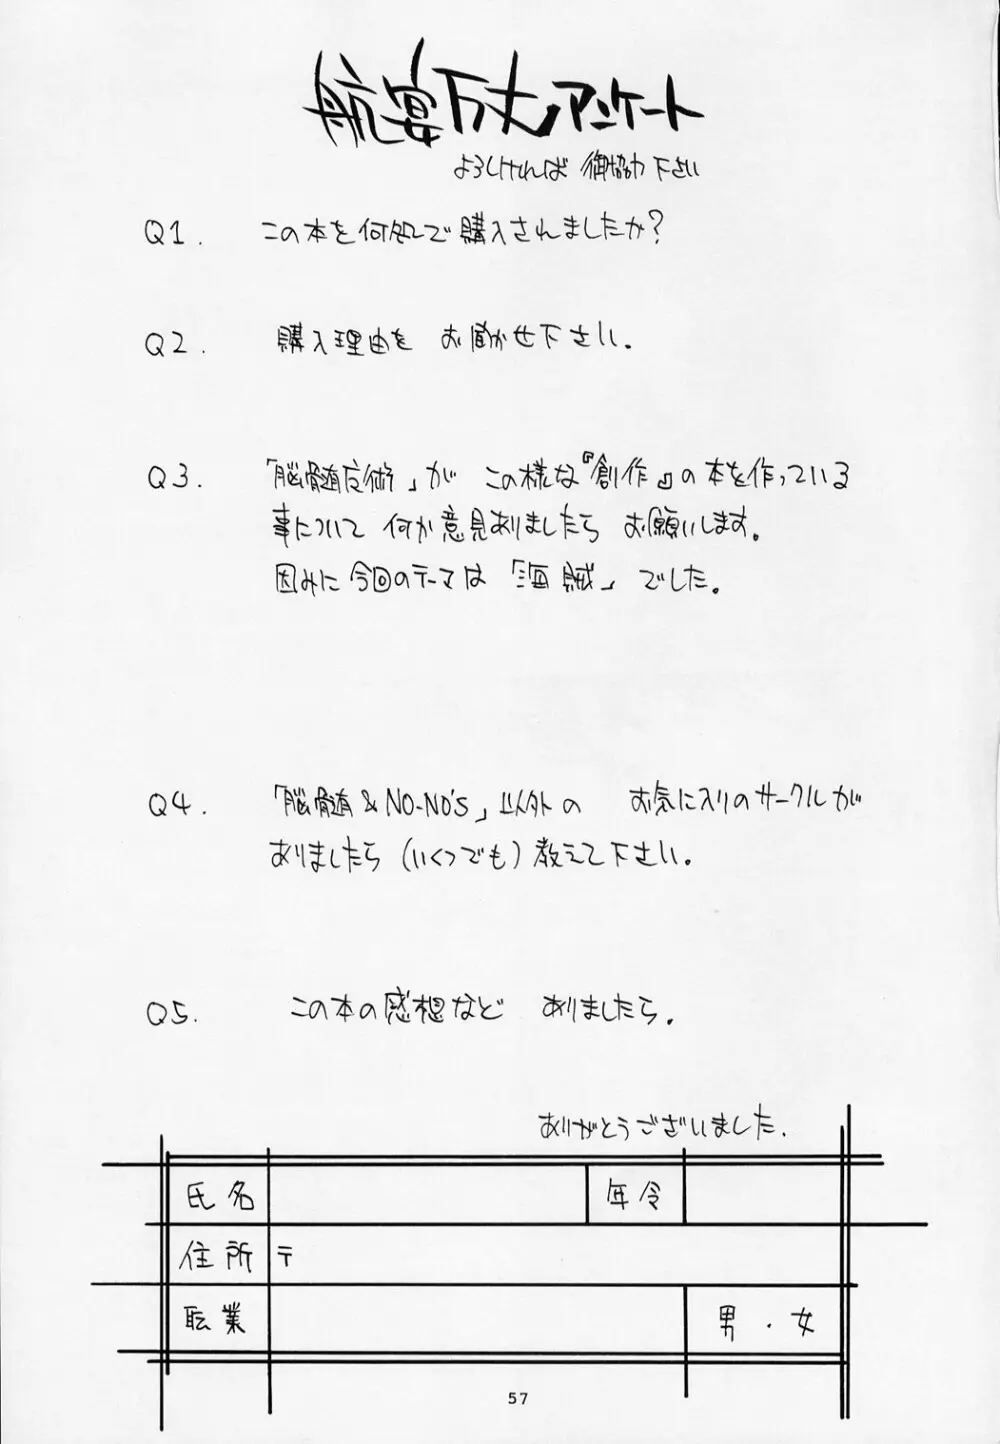 航宴万丈アンケート
よろしければ 御協力 下さい
Q1. この本を何処で購入されましたか?
Q2. 購入理由を お聞かせ下さい。
Q3. 「脳髄皮術」が この様な『創作』の本を作っている
事について 何か意見ありましたら お願いします。
因みに今回のテーマは 「海賊」 でした。
Q4. 「脳髄 & NO-NO'S」以外の お気に入りのサークルが
ありましたら (いくつでも) 教えて下さい。
Q5. この本の感想など ありましたら.
ありがとうございました.
氏名 年令
住所 〒
職業 男・女
57